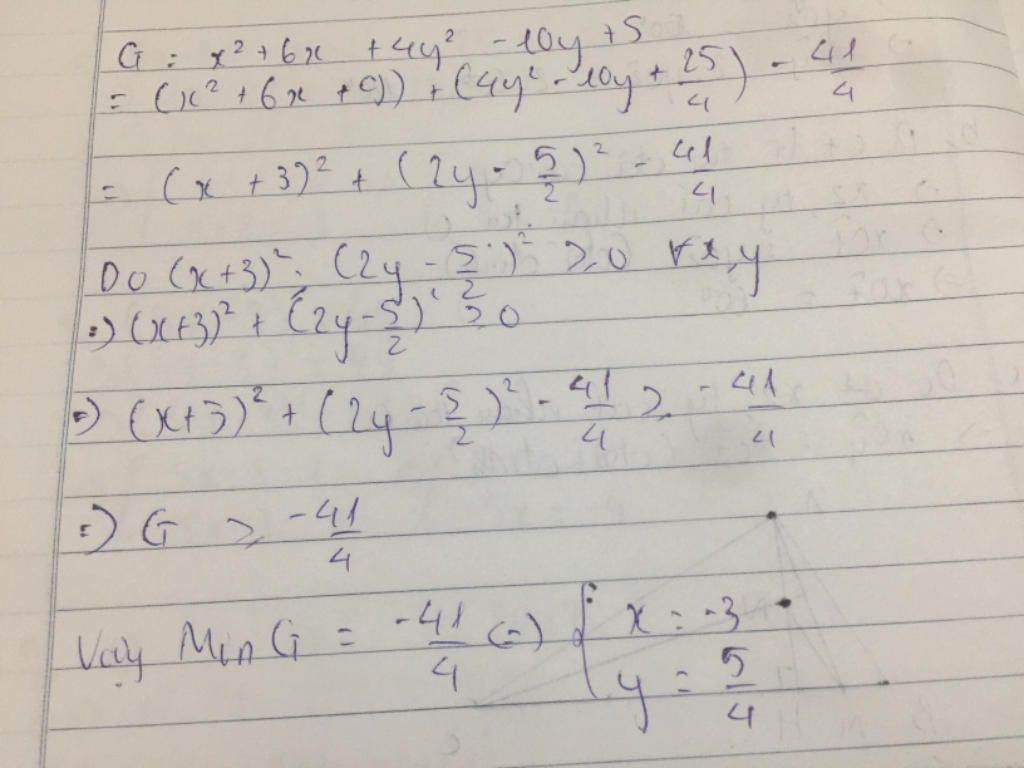 G = x² + 6x + 4y² - 10y + 5
= (x² + 6x + 9) + (4y² - 10y + 25/4) - 41/4
= (x + 3)² + (2y - 5/2)² - 41/4
Do (x+3)² ; (2y - 5/2)² ≥ 0 ∀x,y
=) (x+3)² + (2y - 5/2)² ≥ 0
=) (x+3)² + (2y - 5/2)² - 41/4 ≥ -41/4
=) G ≥ -41/4
Vậy Min G = -41/4 (=) { x = -3
y = 5/4